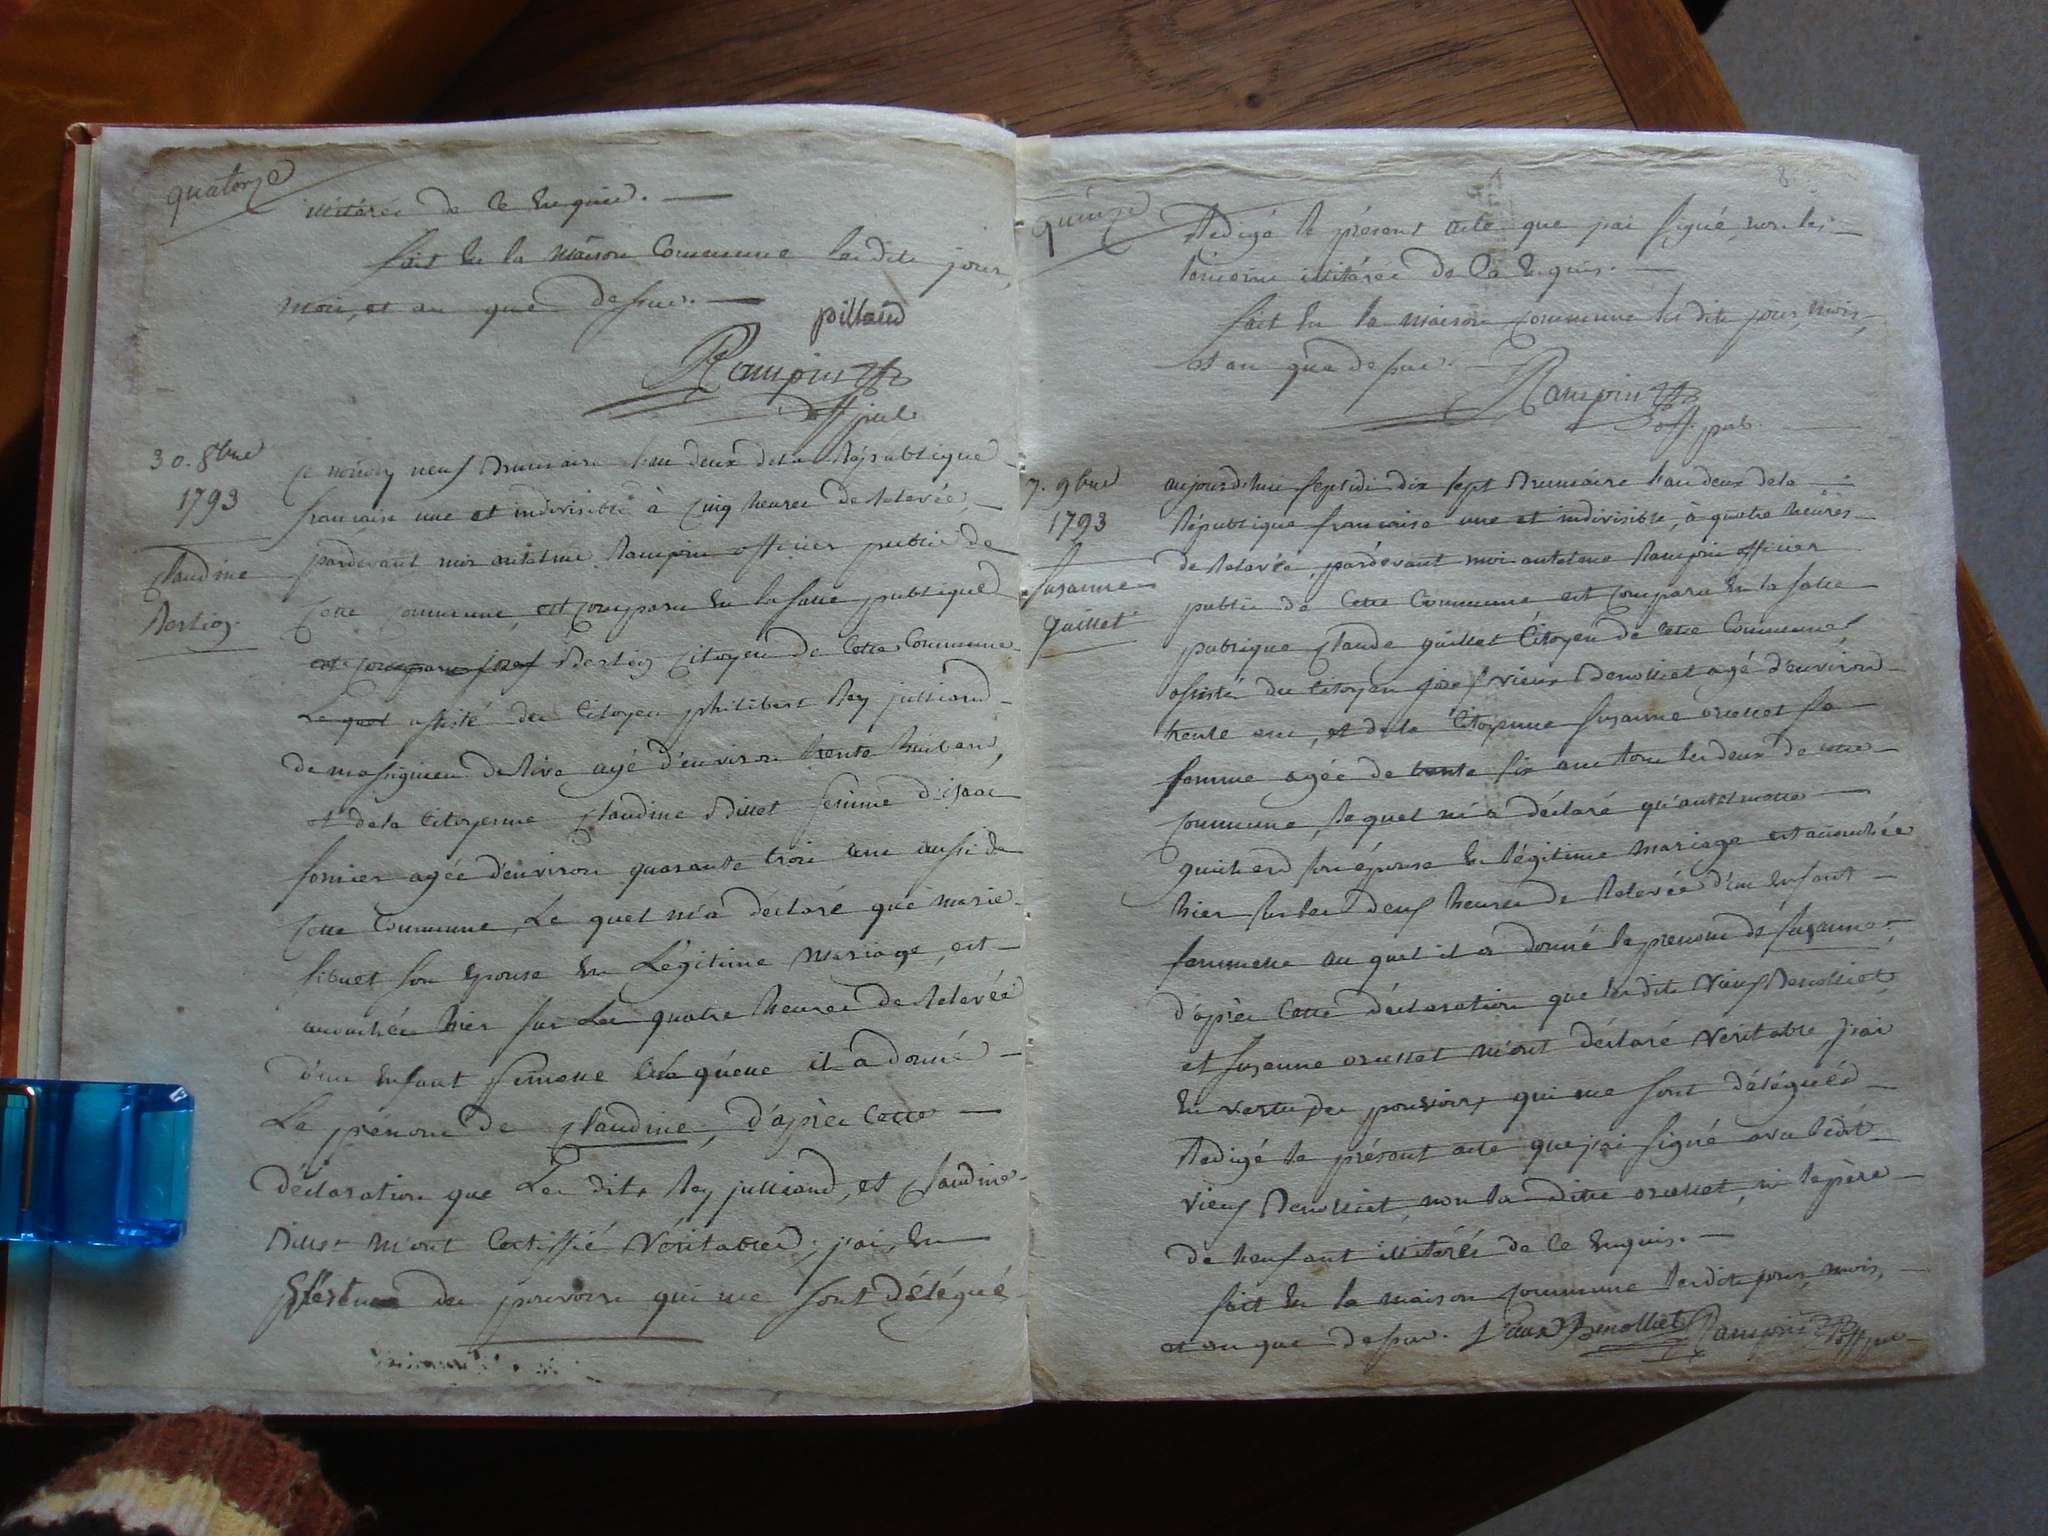 quatorze
illitérée de ce enquise.
fait en la maison Commune lesdits jour,
mois, et an que dessus.
pillaud
Rampin
off publ
30. 8bre
1793
Claudine
Berlioz.
Ce neuf Brumaire l'an deux de la République
francaise une et indivisible à cinq heures de relevée,
pardevant moi antelme Rampin officier public de
cette commune est comparu en la salle publique
est comparu josef Berlioz Citoyen de cette Commune
Lequel assisté du Citoyen philibert Rey julliand
de massignieu de Rive agé d'environ trente huit ans,
et de la Citoyenne Claudine Billet femme d'isaac
fornier agée d'environ quarante trois ans aussi de
cette Commune, Le quel m'a déclaré que marie
son épouse en Légitime mariage, est
accouchée hier sur Les quatre heures de relevée
d'un enfant femelle a donné
Le prénom de Claudine, d'après cette
déclaration que Les dits Rey julliand, et Claudine
Billet m'ont Certiffié Véritable; j'ai, en
des pouvoirs qui me sont délégué
quinze
8
Redigé le présent acte que j'ai signé, non les
témoins illitérée de ce enquis.
fait en la maison commune lesdits jour, mois,
et an que dessus.
Rampin
off. pub.
7. 9bre
1793
Suzanne
Guillet
aujourdhui septidi dix sept Brumaire l'an deux de la
République francaise une et indivisible, à quatre heures
de relevée, pardevant moi antelme Rampin officier
public de Cette Commune est comparu en la salle
publique Claude guillet Citoyen de cette Commune,
assisté du citoyen josef vieux Benolliet agé d'environ
trente ans, et de la Citoyenne Suzanne orsellet sa
femme agée de trente six ans tous les deux de cette
commune, lequel m'a déclaré qu'antelmette
son épouse en légitime mariage est accouchée
hier sur les deux heures de relevée d'un enfant
femmelle au quel il a donné le prenom de Suzanne,
d'après cette déclaration que lesdits Vieux Benolliet
et Suzanne orsellet m'ont déclaré véritable, j'ai
en vertu des pouvoirs qui me sont délégués
Redigé le présent acte que j'ai signé avec ledit
vieux Benolliet, non la ditte orsellet, ni le père
de l'enfant illitérés de ce enquis.
fait en la maison commune lesdits jour, mois,
et an que dessus. Vieux Benolliet Rampin off pu